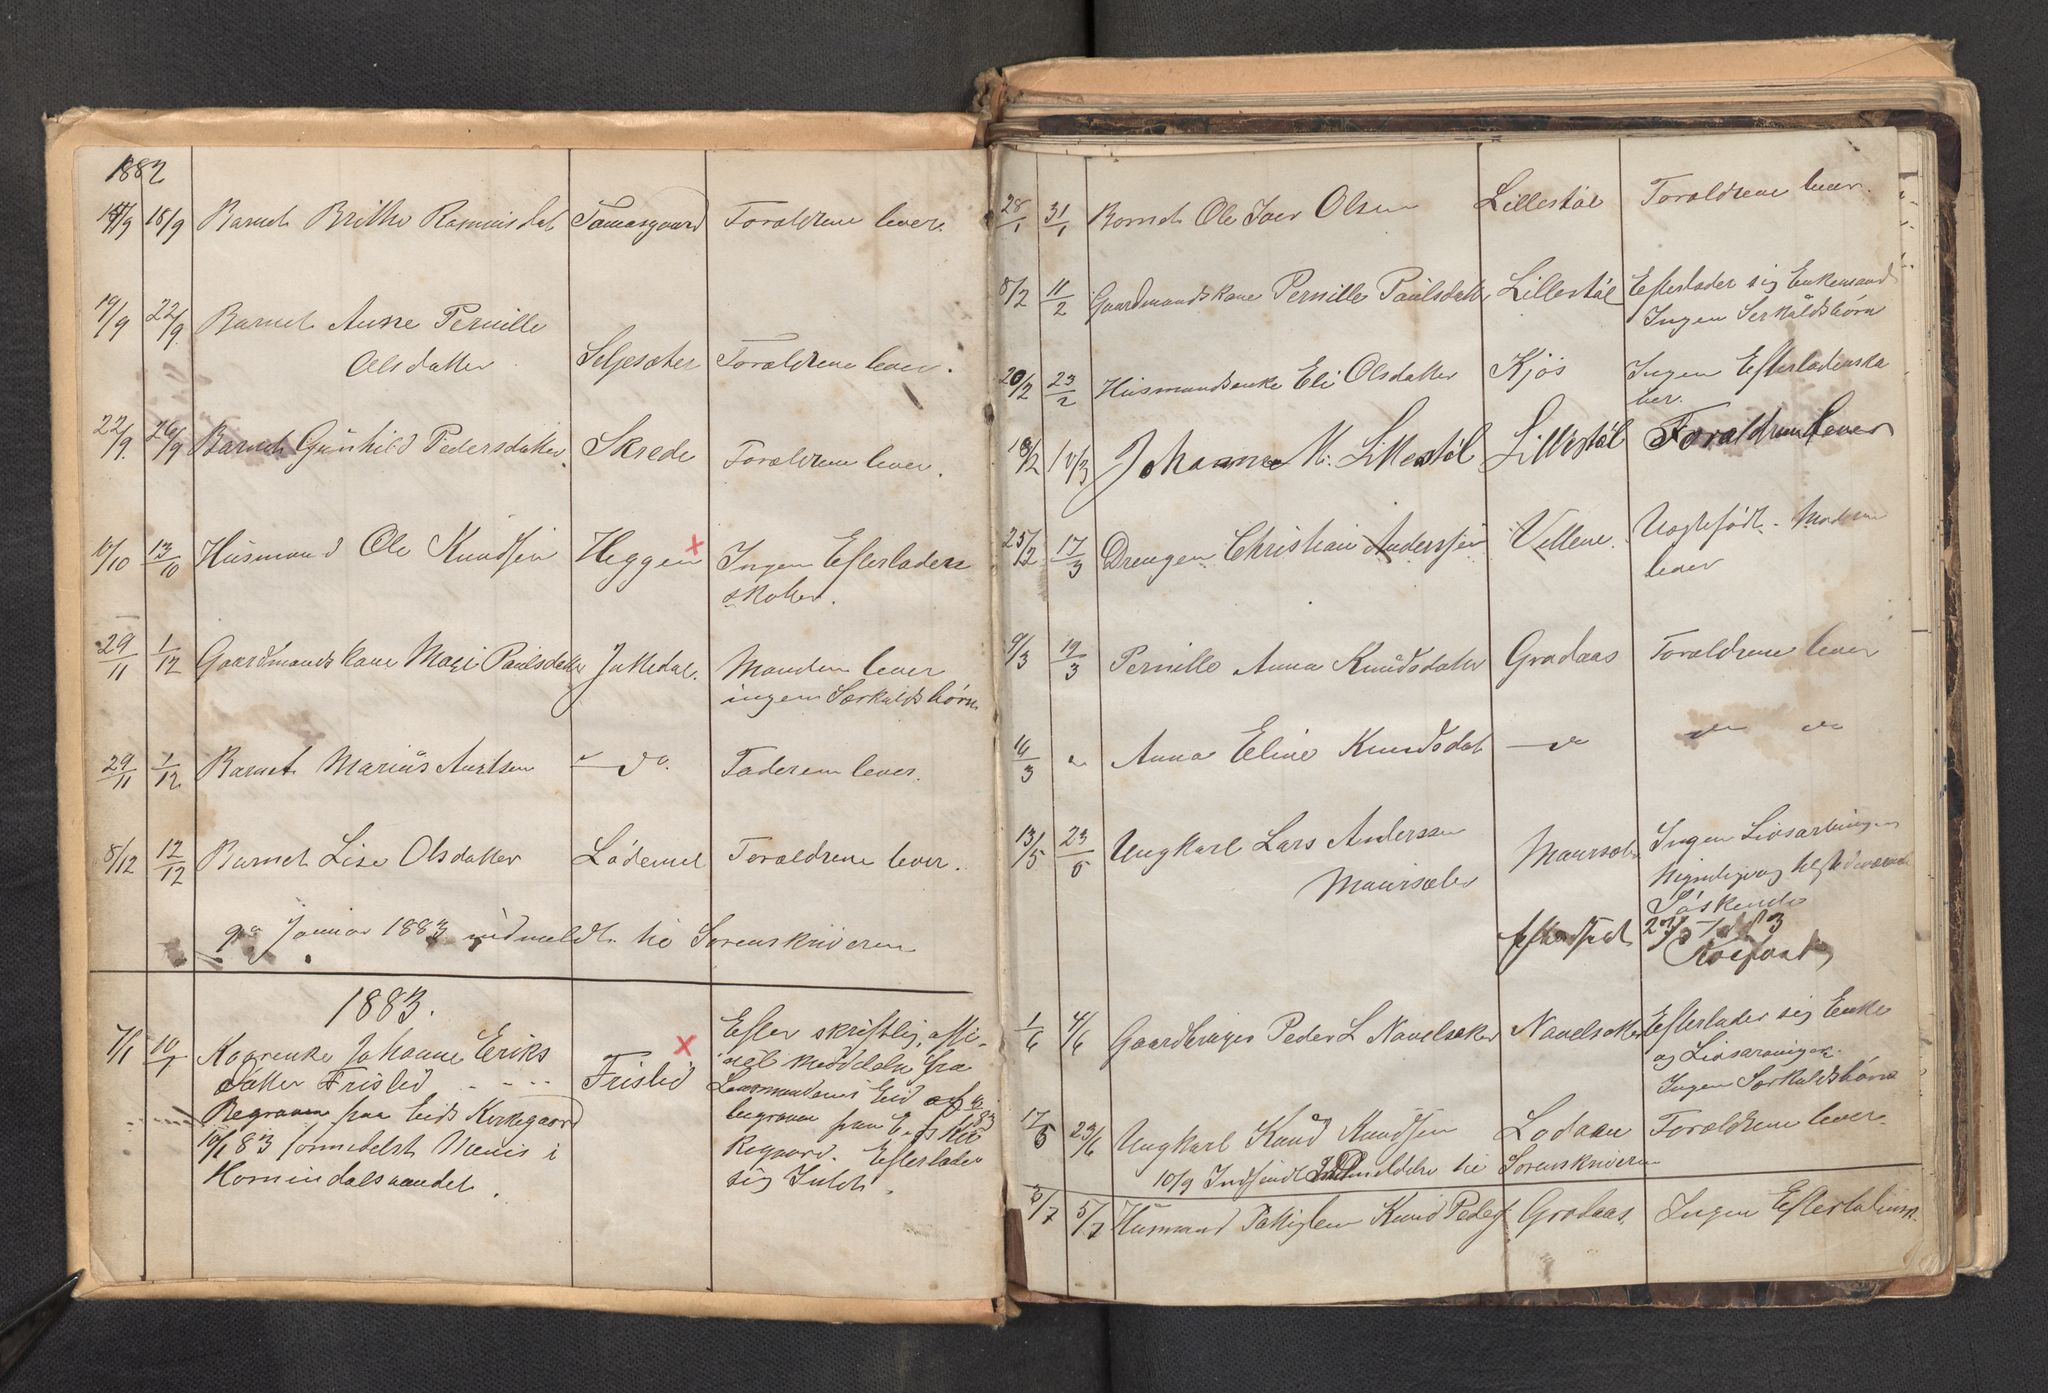 1882
18/9 Barnet Brithe Rasmusdat Tomasgaard Forældrene lever.
19/9 22/9 Barnet Anne Pernille
Olsdatter Seljesæter Forældrene lever.
22/9 26/9 Barnet Gunhild Pedersdatter Skrede Forældrene lever.
13/10 Husmand Ole Knudsen Heggen Ingen Efterladens
skaber.
29/11 1/12 Gaardmandskone Mari Paulsdatter Manden lever
ingen Særkuldsbørn
29/11 1/12 Barnet Marius do. Faderen lever.
8/12 12/12 Barnet Lise Olsdatter Lødemel Forældrene lever.
Januar 1883 indmeldt til Sorenskriveren
1883.
7/1 10/1 Johanne Eriks
datter Frislid Frislid
Begraven paa Eids Kirkegaard
10/1 83 formedelst Menis i
Hornindalsvandet.
Efter skriftlig, offi-
ciel Meddelelse fra
Lensmanden i Eid
begraven paa Eids Kir
kegaard. Efterlader
sig Intet.
28/1 31/1 Barnet Ole Olsen Lillestøl Forældrene lever.
8/2 11/2 Gaardmandskone Pernille Paulsdatter Lillestøl Efterlader sig Enkemand
Ingen Serkuldsbørn
20/2 23/2 Husmandsenke Eli Olsdatter Kjøs Ingen Efterladenska
ber.
Johanne M. Lillestøl Lillestøl Forældrene lever
25/2 17/3 Drengen Christian Anderssen Vellene. Uægtefødt. Moderen
lever
9/3 19/3 Pernille Anna Knudsdatter Grodaas Forældrene lever
14/3 " Anna Eline Knudsdat do do
13/5 23/5 Ungkarl Lars Anderssen
Maurseter Maurset Ingen Livsarvinger
Søskende
1/6 4/6 Gaardbruger Peder L Navelsaker Navelsaker Efterlader sig Enke
og Livsarvinger.
Ingen Særkuldsbørn
23/6 Ungkarl Knud Knudsen Lødøen Forældrene lever.
10/9 Indsendt til Sorenskriveren
3/7 5/7 Husmand Knud Peders Grodaas. Ingen